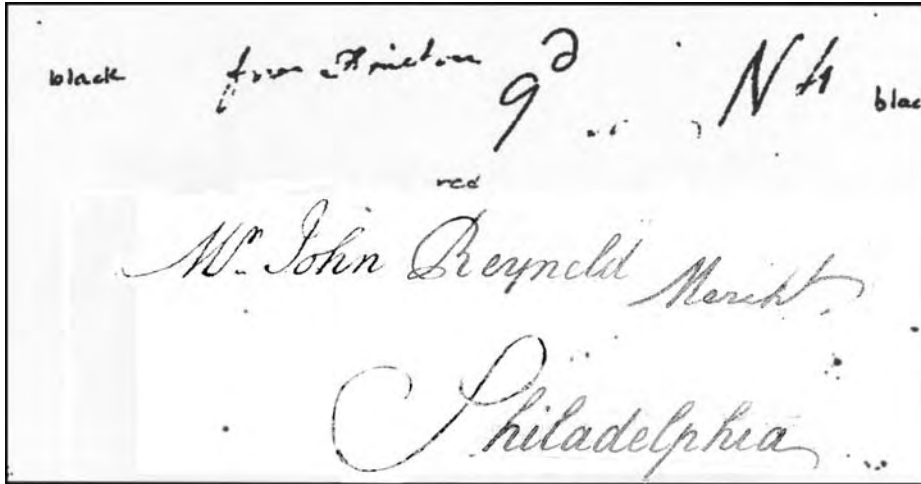 black from 9d N 4 blac
red
Mr. John Reyneld Mercht.
Philadelphia